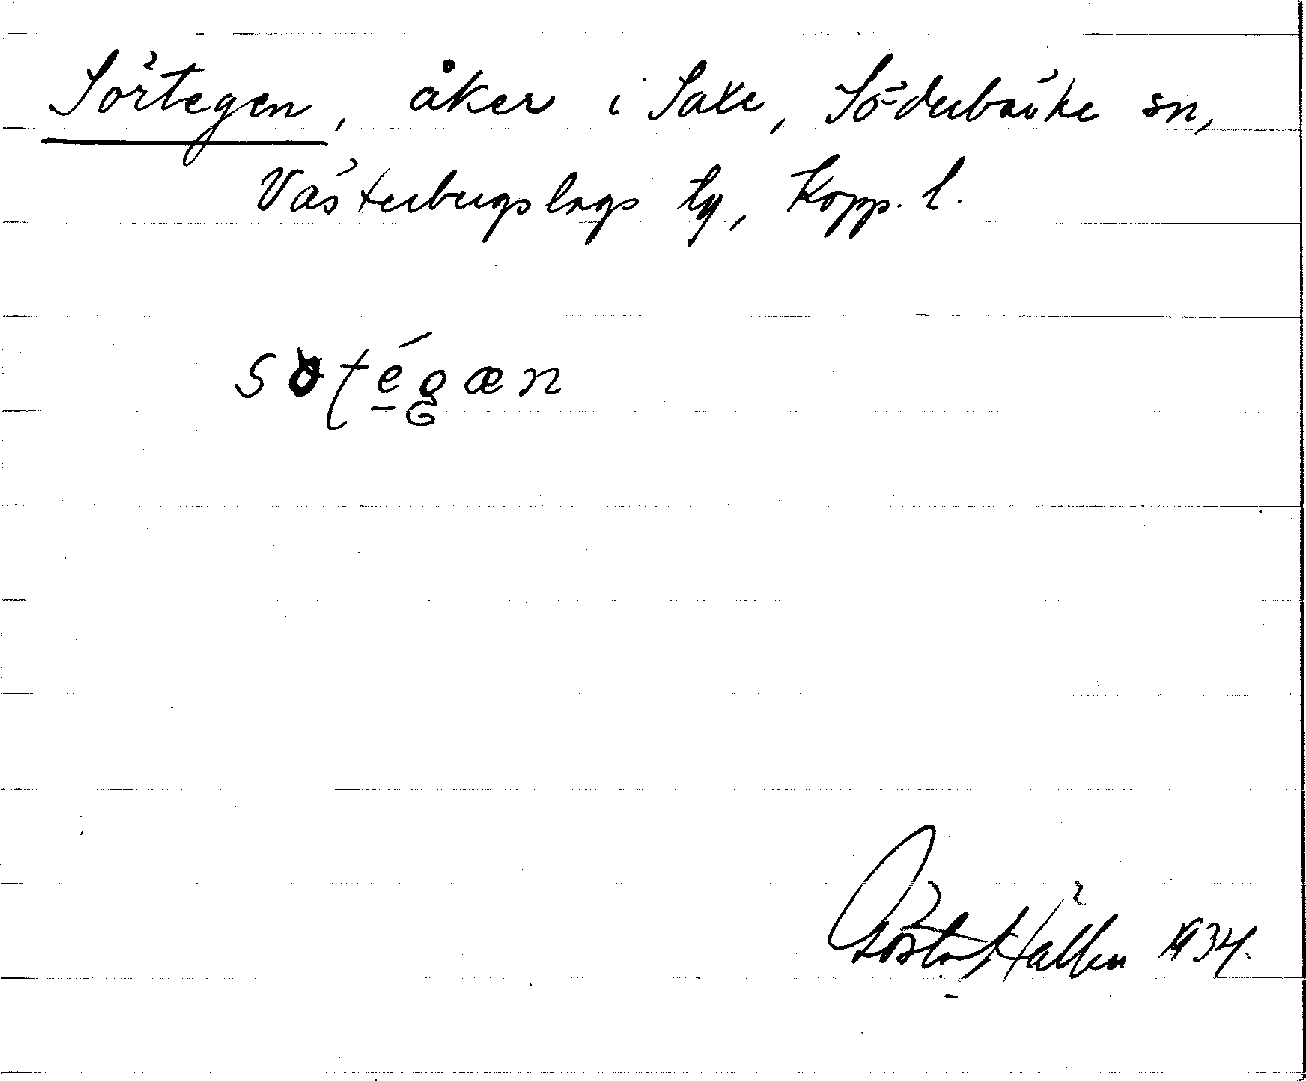 Sörtegen, åker i Saxe, Söderbärke sn,
Västerbergslags tg, Kopp. l.
Gösta Hallén 1934.